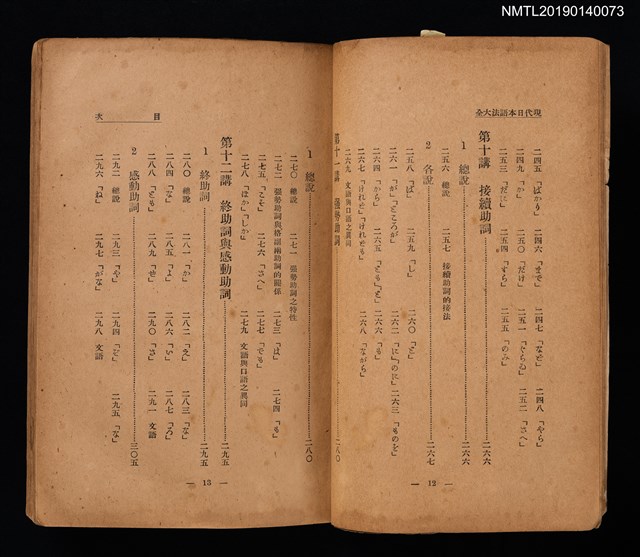 NMTL20190140073
現代日本語法大全
二四五「ばかり」 二四六「まで」 二四七「など」 二四八「やら」
二四九「か」 二五〇「だけ」 二五一「ぐらゐ」 二五二「さへ」
二五三「だに」 二五四「すら」 二五五「のみ」
第十講 接續助詞 二六六
1 總說 二六六
二五六 總說 二五七 接續助詞的接法
2 各說 二六七
二五八「ば」 二五九「し」 二六〇「と」
二六一「が」「ところが」 二六二「に」「のに」 二六三「ものを」
二六四「から」 二六五「とも」「と」
二六七「けれど」「けれども」 二六八「ながら」
二六九 文語與口語之異同
第十一講 强勢助詞 二八〇
— 12 —
1 總說 二八〇
二七〇 總說 二七一 强勢助詞之特性
二七二 强勢助詞與格副兩助詞的關係 二七三「は」 二七四「も」
二七五「こそ」 二七六「さへ」 二七七「でも」
二七八「ほか」「しか」 二七九 文語與口語之異同
第十二講 終助詞與感動助詞 二九五
1 終助詞 二九五
二八〇 總說 二八一「か」 二八二「え」 二八三「な」
二八四「な」 二八五「よ」 二八六「い」 二八七「ろ」
二八八「とも」 二八九「ぜ」 二九〇「さ」 二九一 文語
2 感動助詞 三〇五
二九二 總說 二九三「や」 二九四「ぞ」 二九五「な」
二九六「ね」 二九七「がな」 二九八 文語
目 次
— 13 —